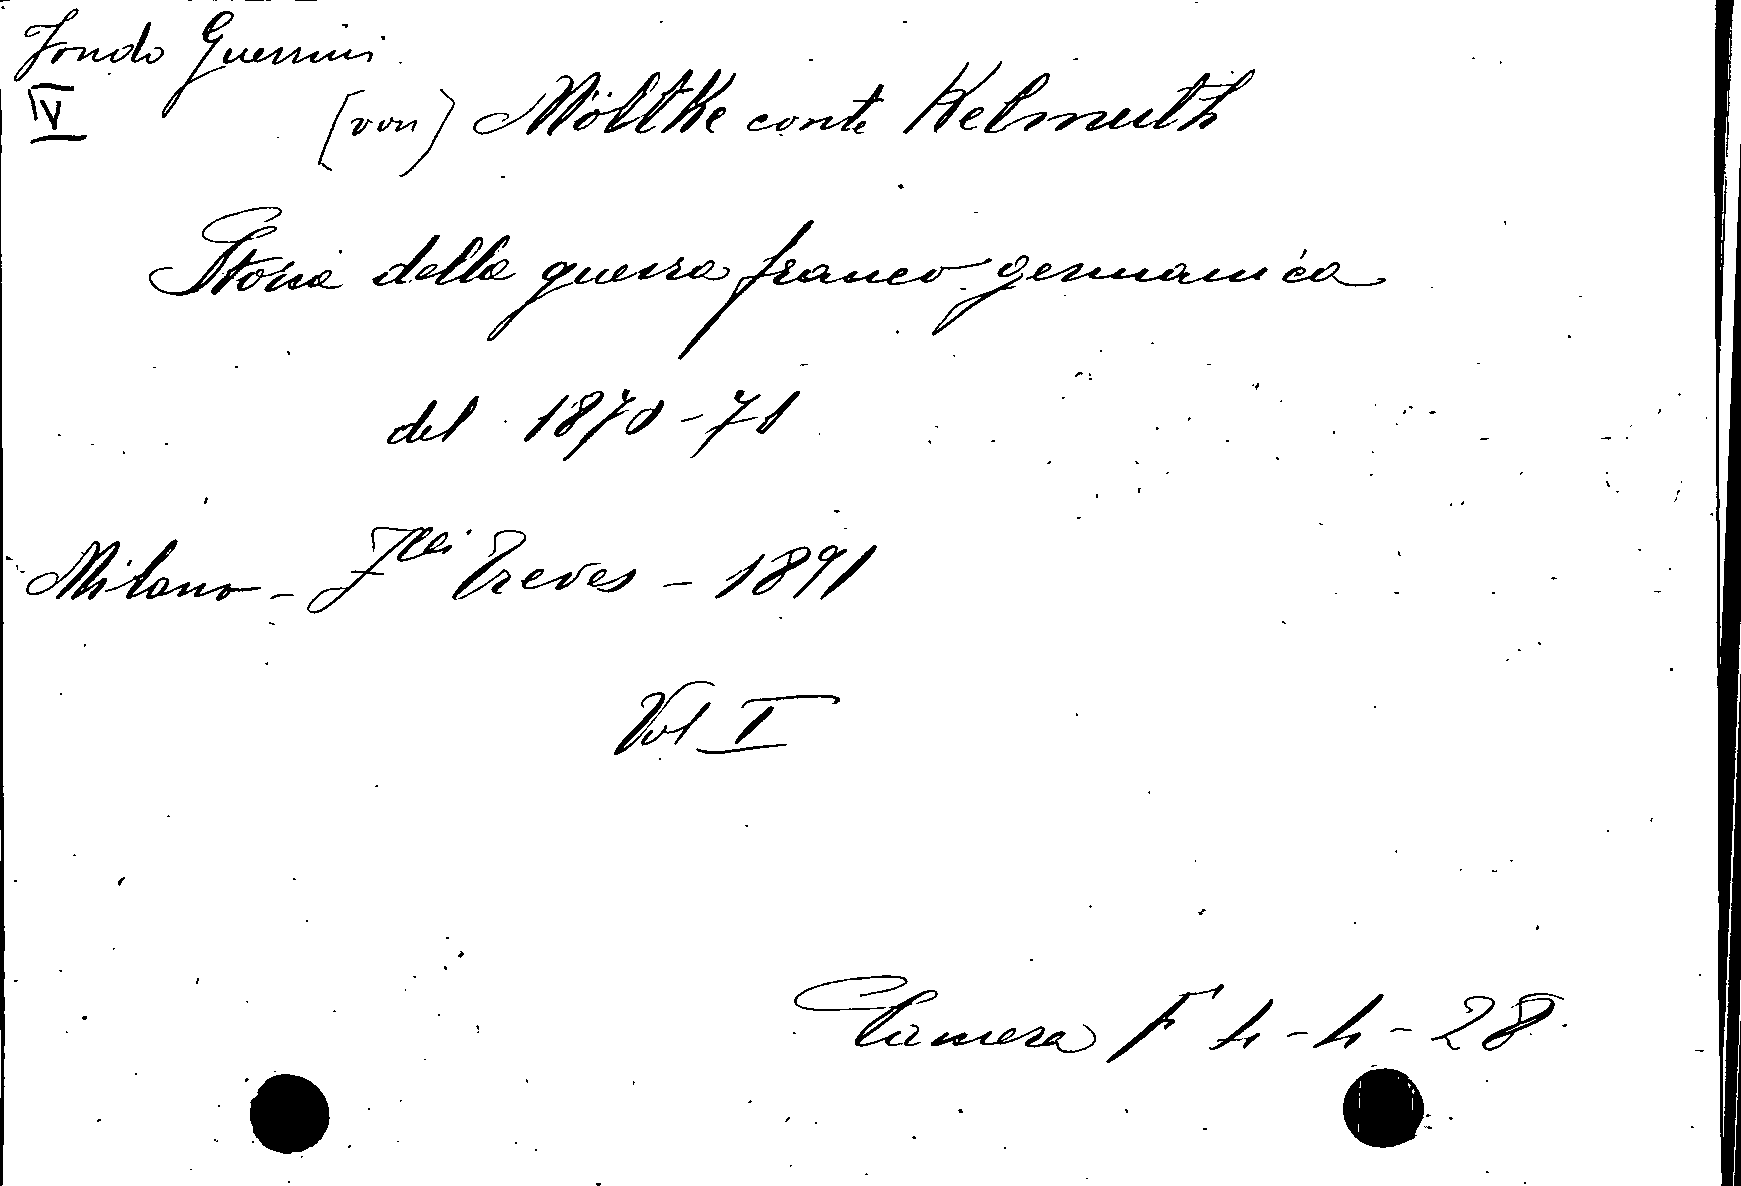 Fondo Guerrini
IV
(von) Möltke conte Helmuth
Storia della guerra franco germanica
del 1870-71
Milano - Flli Treves - 1891
Vol I
Camera F 4-4-28